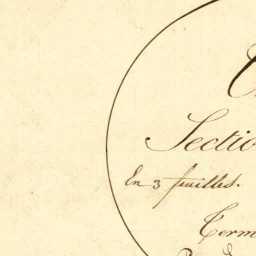 Sectio
En 3 feuilles.
Term